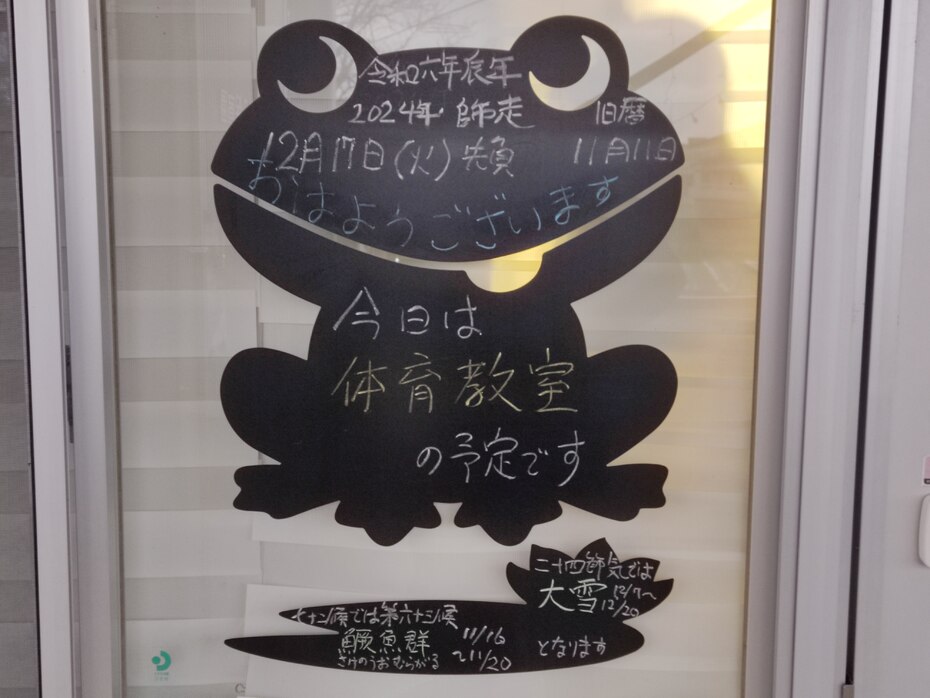 令和六年辰年
2024年・師走
旧暦
12月17日(火)先負
11月11日
おはようございます
今日は
体育教室
の予定です
二十四節気では
大雪 12/7〜
12/20
七十二候では第六十三候
鱖魚群 11/16
さけのうおむらがる 〜11/20
となります